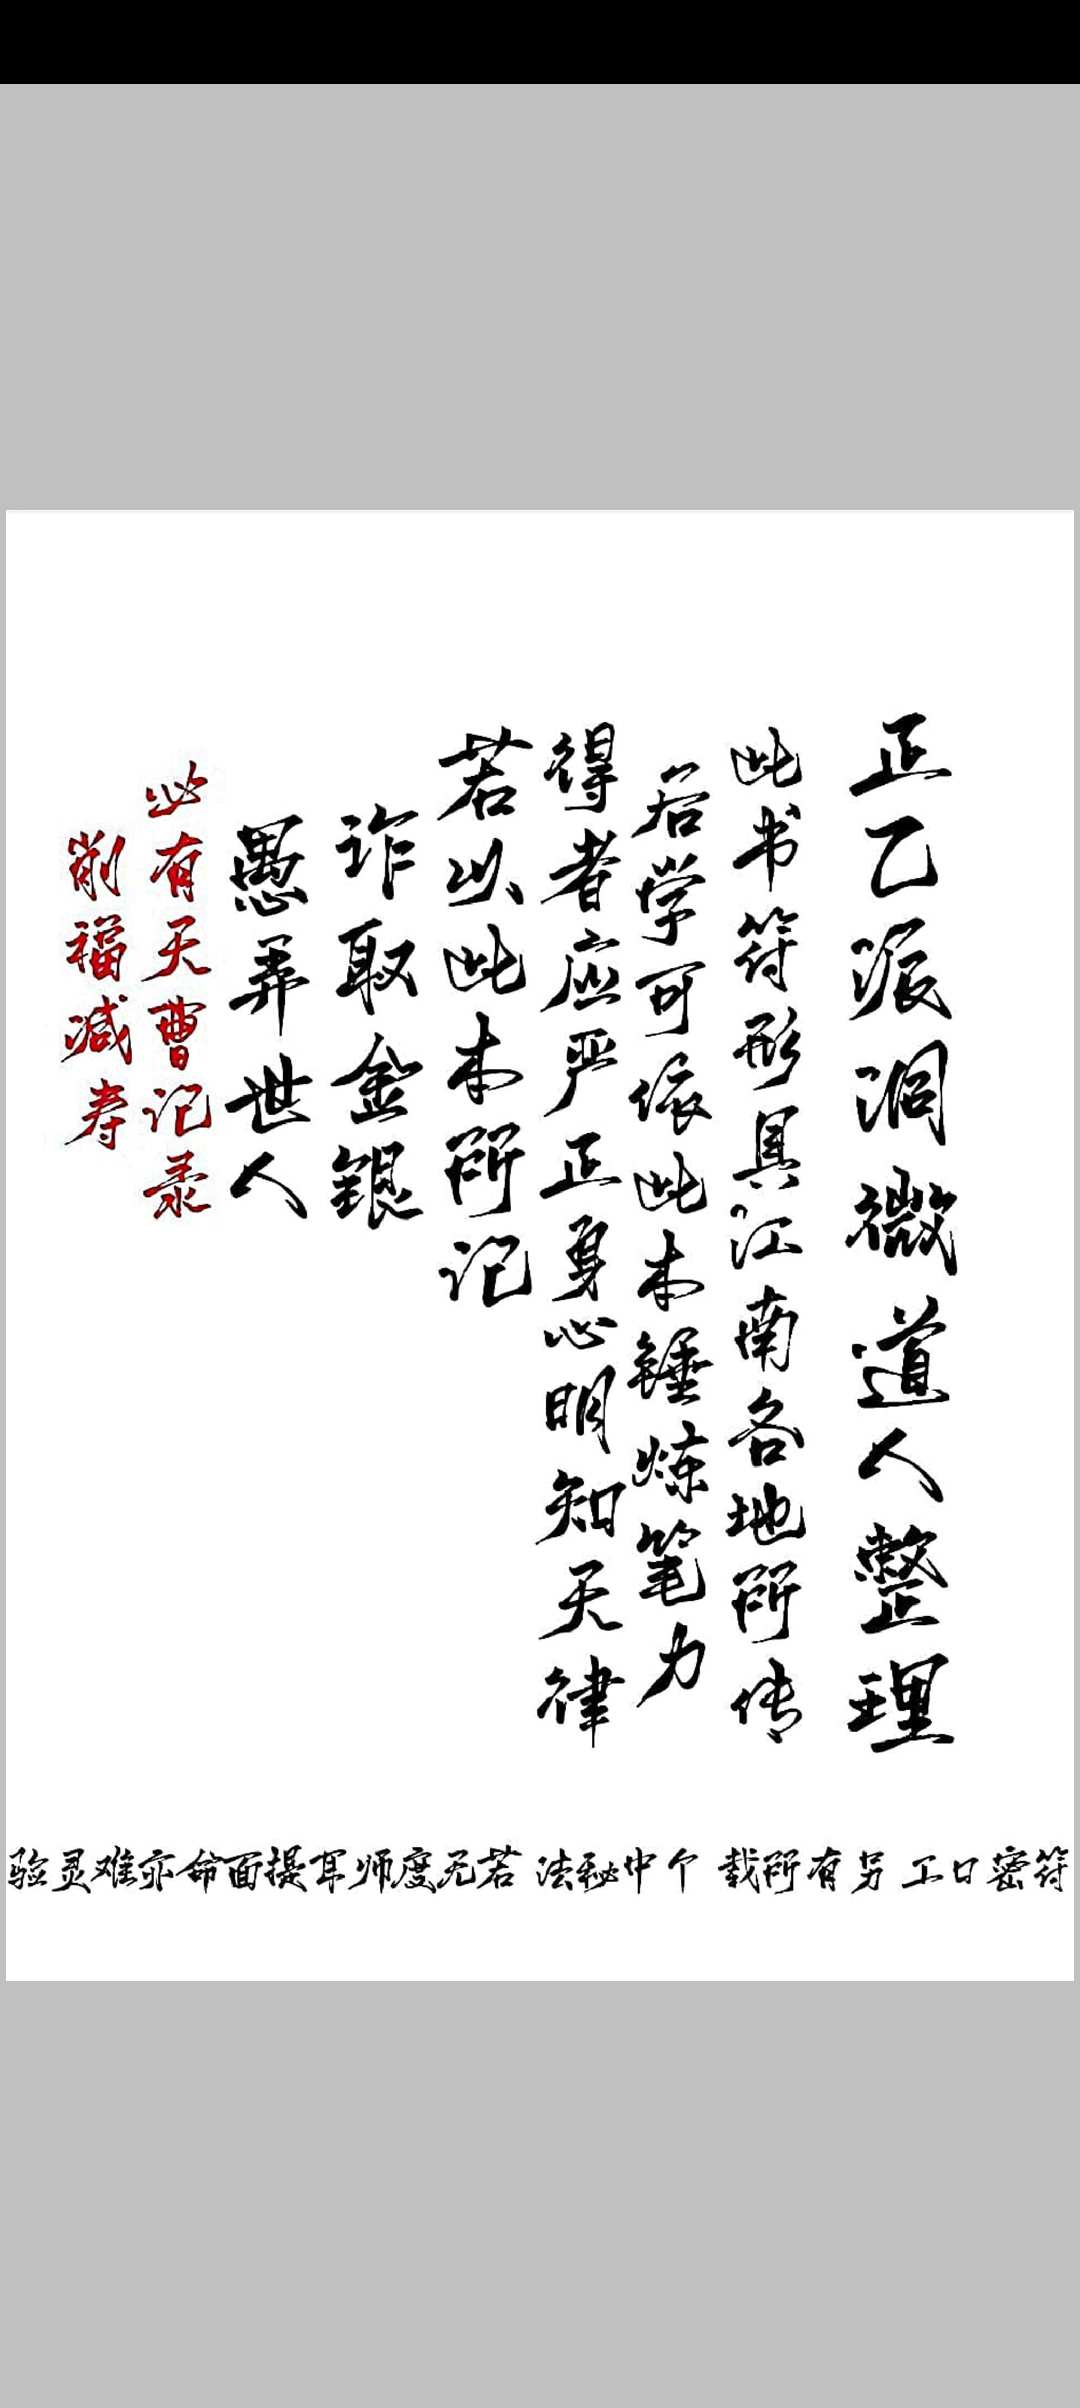 正乙派洞微道人整理
此书符形具江南各地所传
若学可依此本锤炼笔力
得者应严正身心明知天律
若以此本所记
诈取金银
愚弄世人
必有天曹记录
削福减寿
符密日工 另有所载 个中秘法 若无度师耳提面命亦难灵验